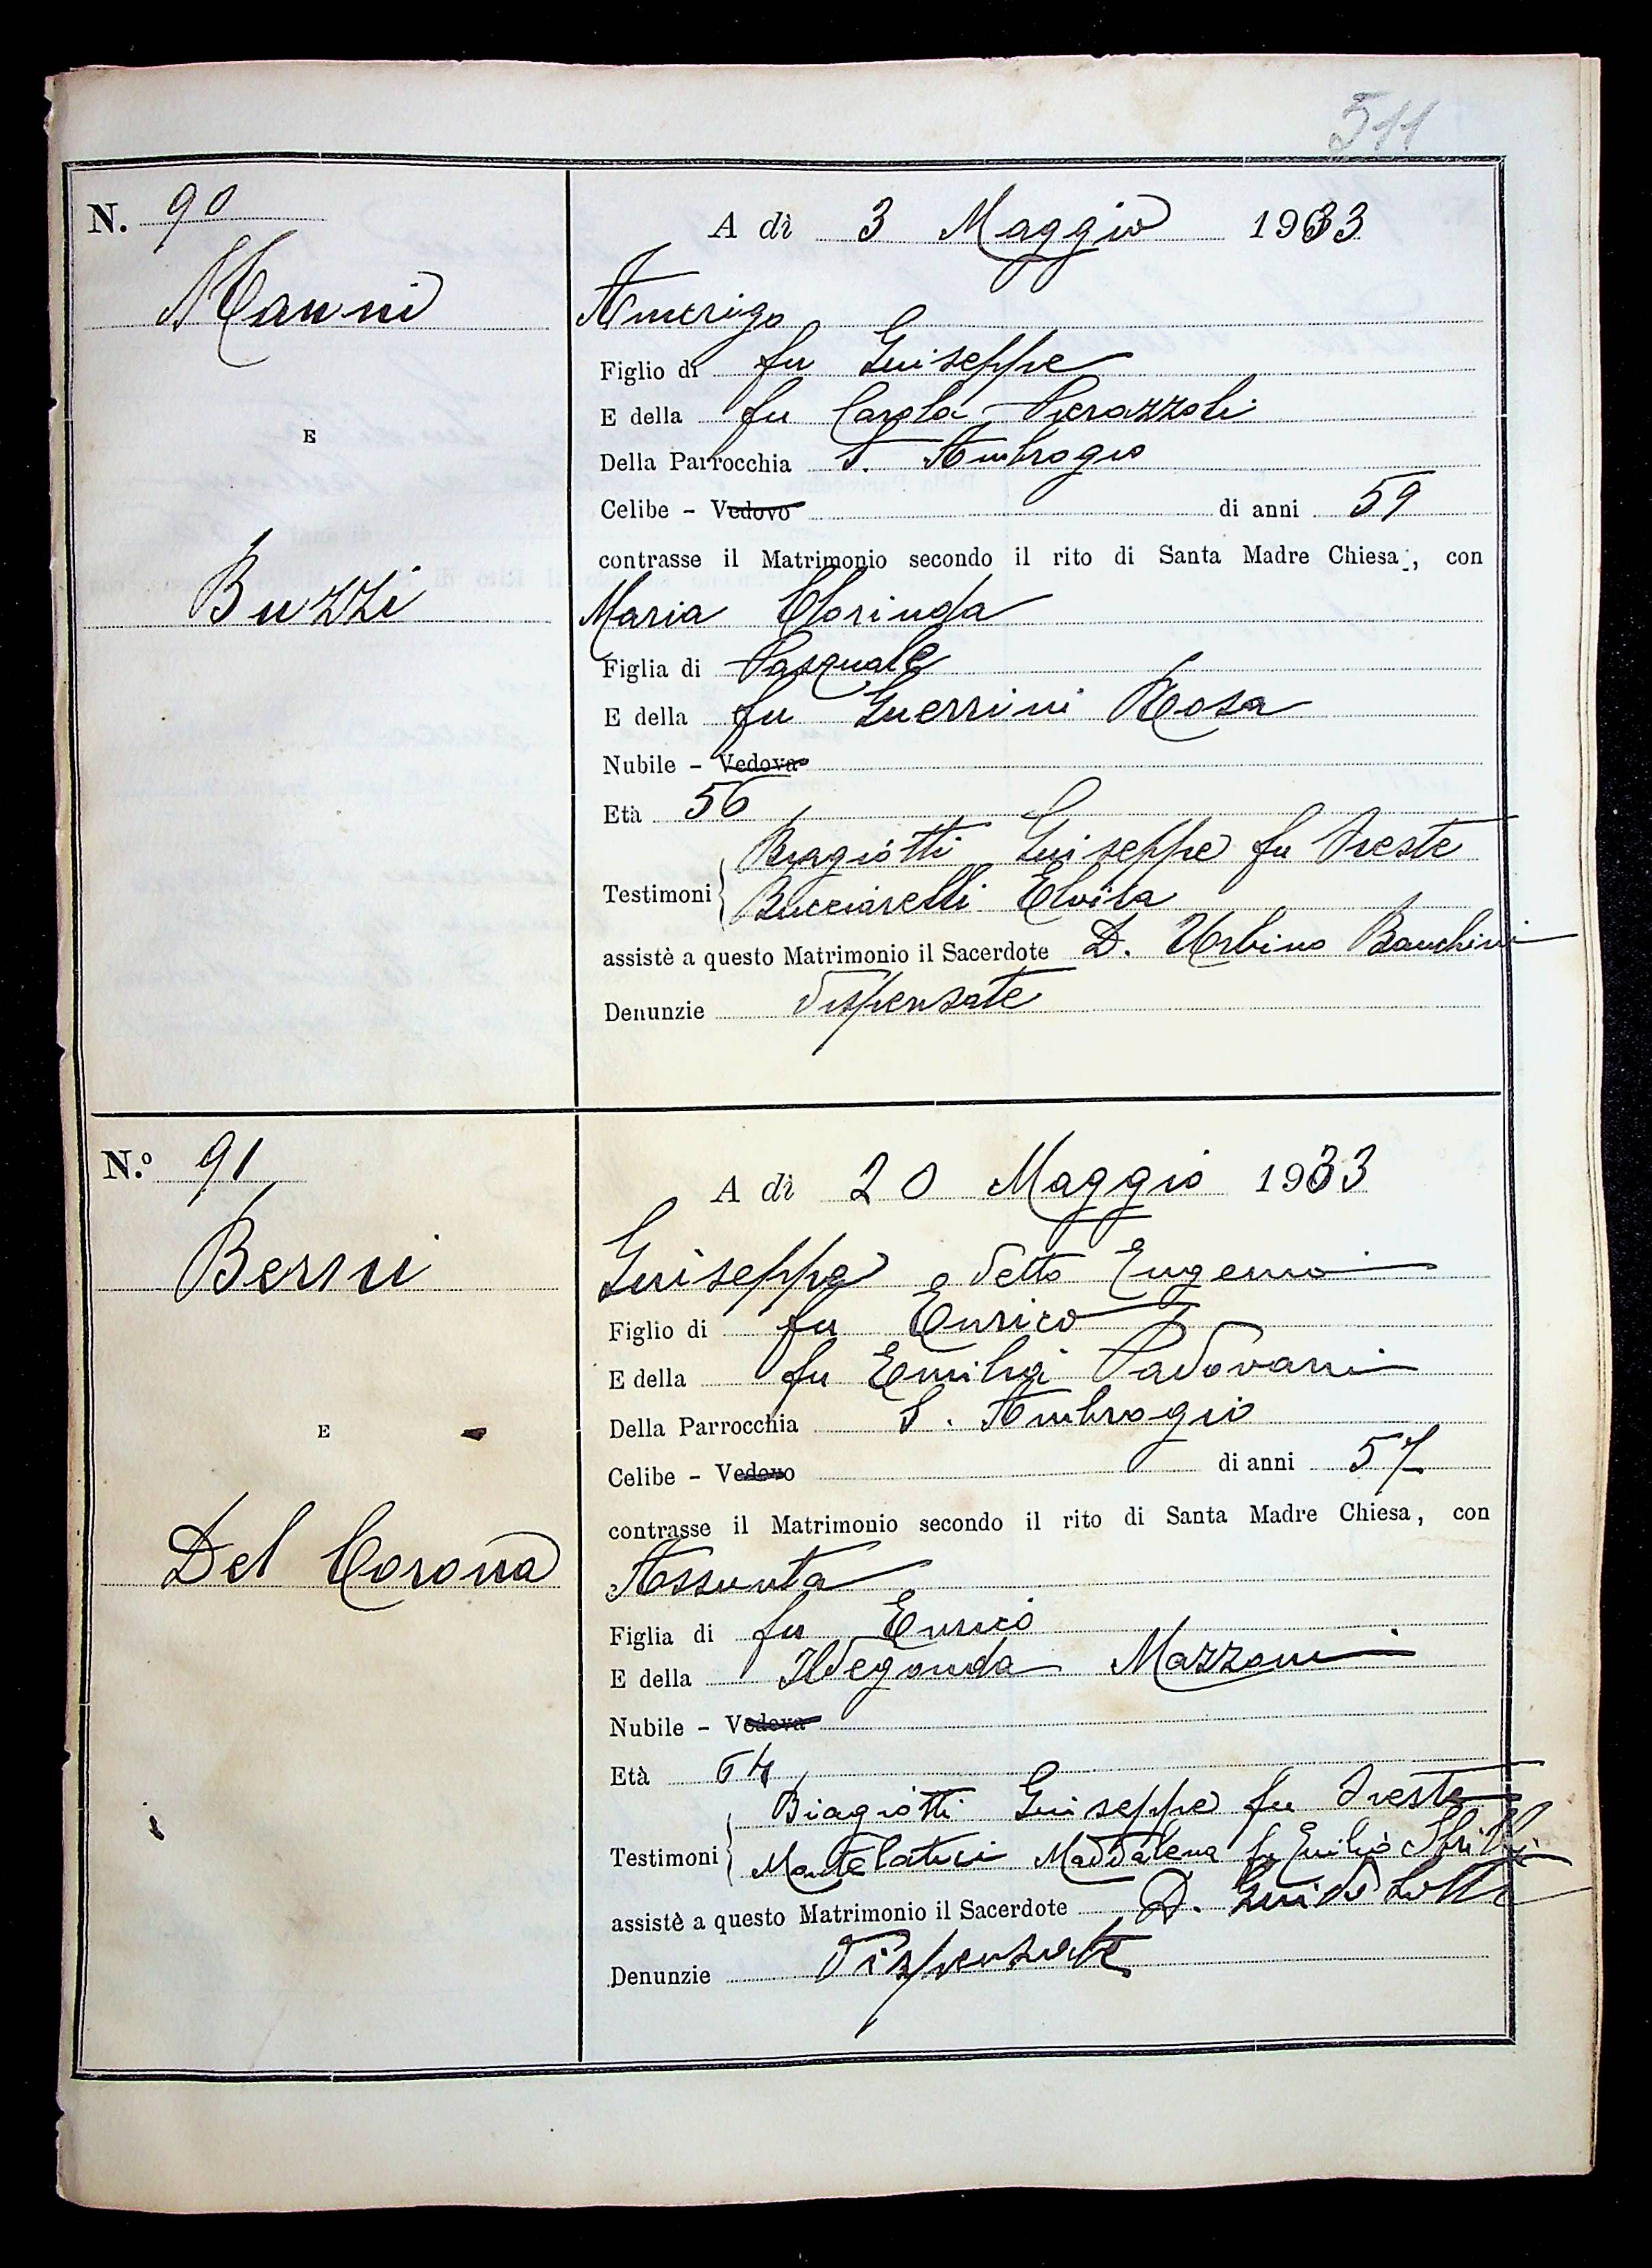 511
N. 90
A dì 3 Maggio 1933
Manni
Amerigo
Figlio di fu Giuseppe
E della fu Carola Pierazzoli
E
Della Parrocchia S. Ambrogio
Celibe - Vedovo di anni 59
contrasse il Matrimonio secondo il rito di Santa Madre Chiesa, con
Buzzi
Maria Clorinda
Figlia di Pasquale
E della fu Guerrini Rosa
Nubile - Vedova
Età 56
Biagiotti Giuseppe fu Oreste
Testimoni
Bucciarelli Elvira
assistè a questo Matrimonio il Sacerdote D. Urbino Banchini
Denunzie Dispensate
N.º 91
A dì 20 Maggio 1933
Berni
Giuseppe detto Eugenio
Figlio di fu Enrico
E della fu Emilia Padovani
E
Della Parrocchia S. Ambrogio
Celibe - Vedovo di anni 57
contrasse il Matrimonio secondo il rito di Santa Madre Chiesa, con
Del Corona
Assunta
Figlia di fu Enrico
E della Ildegonda Mazzoni
Nubile - Vedova
Età 64
Biagiotti Giuseppe fu Oreste
Testimoni
Mantelatici Maddalena fu Emilio
assistè a questo Matrimonio il Sacerdote D. Guido
Denunzie Dispensate